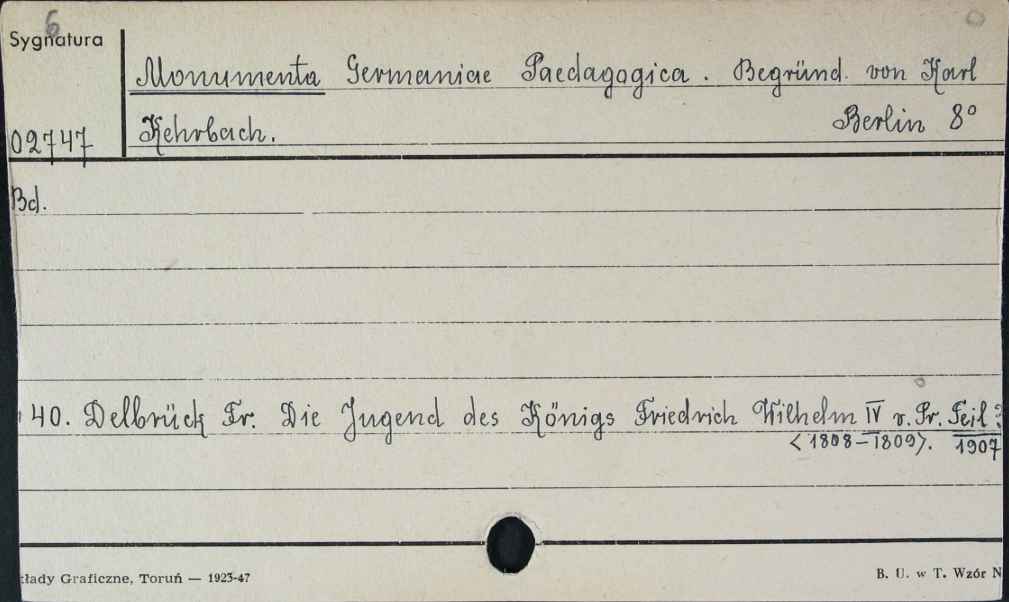 6
Sygnatura
Monumenta Germaniae Paedagogica. Begründ. von Karl
02747 Kehrbach. Berlin 8°
Bd.
40. Delbrück Fr. Die Jugend des Königs Friedrich Wilhelm IV v. Pr. Teil
<1808-1809>. 1907
łady Graficzne, Toruń — 1923-47
B. U. w T. Wzór N